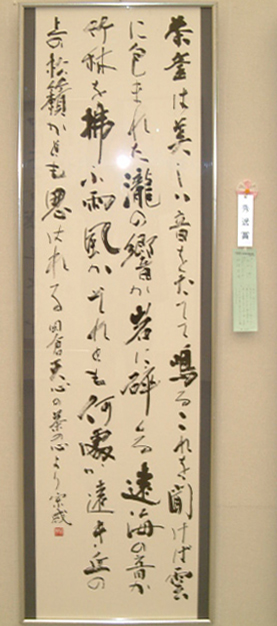 茶釜は美しい音をたてて鳴るこれを聞けば雲
に包まれた瀧の響か岩に砕くる遠海の音か
竹林を拂ふ雨風かそれとも何處か遠き丘の
上の松籟かとも思はれる 岡倉天心の茶の心より 宗成